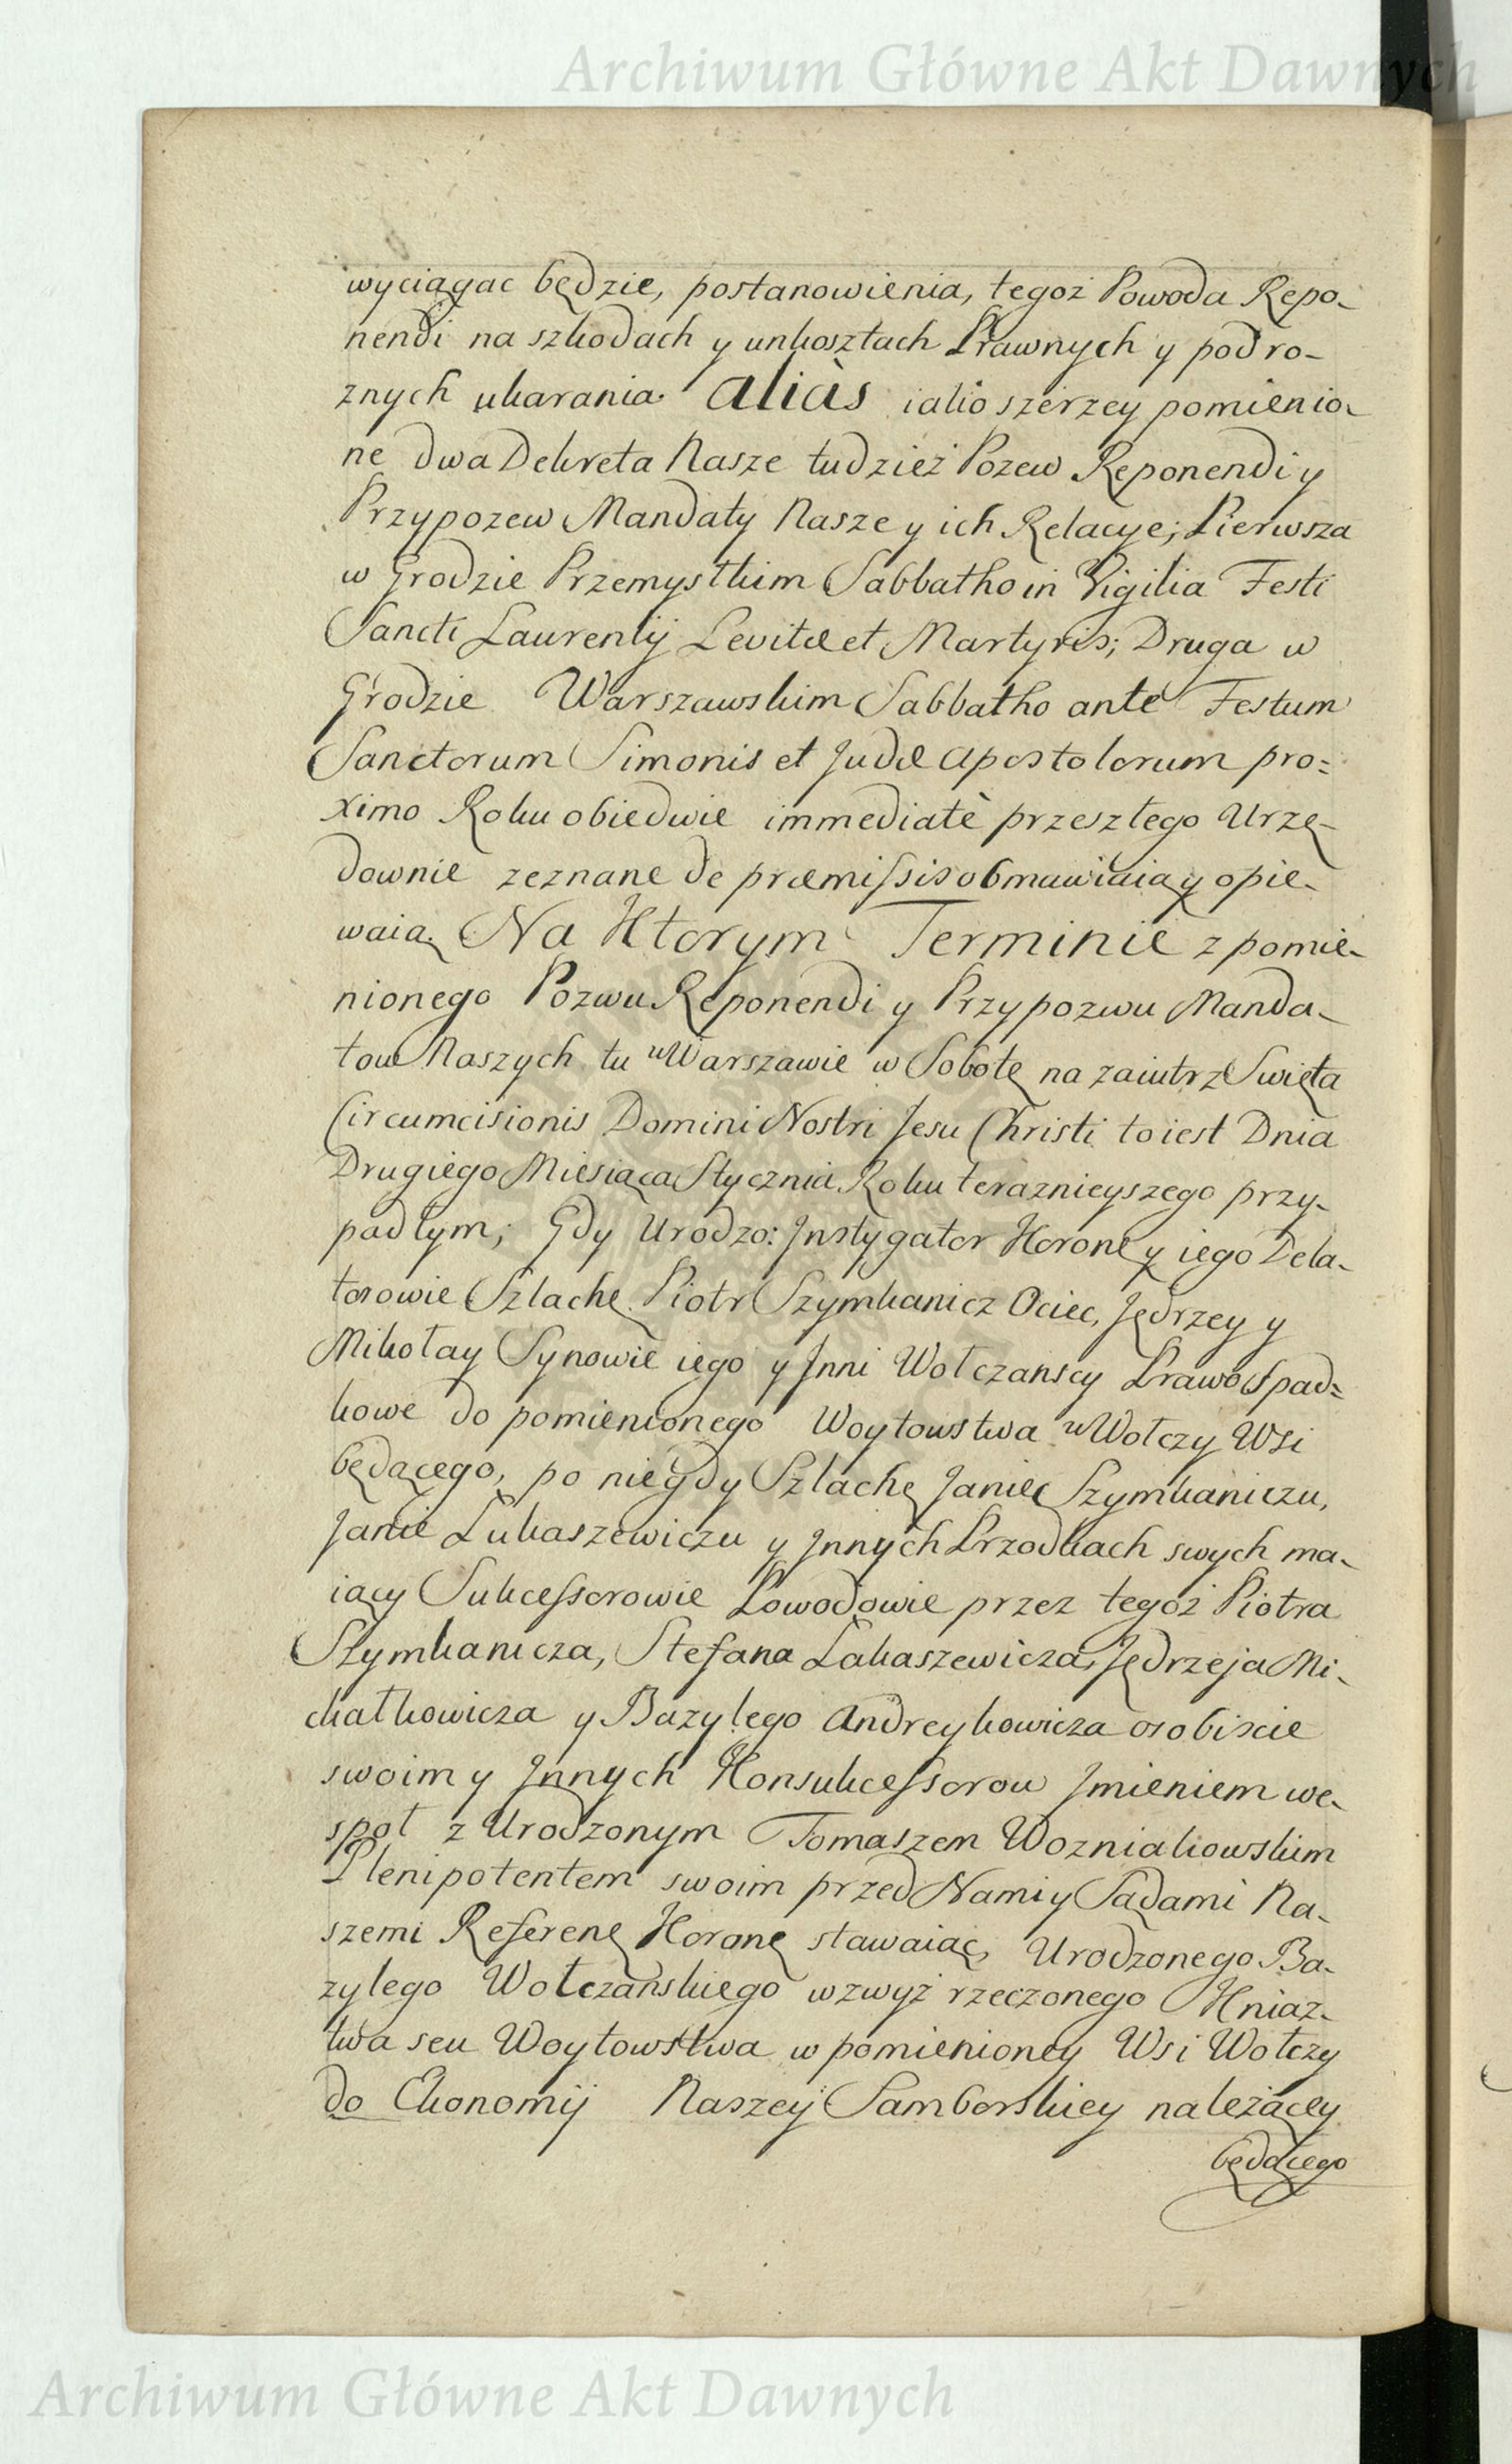 Archiwum Główne Akt Dawnych
wyciągac będzie, postanowienia, tegoż Powoda Repo-
nendi na szkodach y unkosztach Prawnych y podro-
znych ukarania. aliàs iako szerzey pomienio-
ne dwa Dekreta Nasze tudzież Pozew Reponendi y
Przypozew Mandaty Nasze y ich Relacye; Pierwsza
w Grodzie Przemyslkim Sabbatho in Vigilia Festi
Sancti Laurentij Levitæ et Martyris; Druga w
Grodzie Warszawskim Sabbatho ante Festum
Sanctorum Simonis et Judæ Apostolorum pro=
ximo Roku obiedwie immediatè przeszłego Urzę-
downie zeznane de præmissis obmawiaią y opie-
waią. Na Ktorym Terminie z pomie-
nionego Pozwu Reponendi y Przypozwu Manda-
tow Naszych tu w Warszawie w Sobotę na zaiutrz Swięta
Circumcisionis Domini Nostri Jesu Christi to iest Dnia
Drugiego Miesiąca Stycznia Roku teraznieyszego przy-
padłym; Gdy Urodzo: Jnstygator Koronny y iego Dela-
torowie Szlachę. Piotr Szymkanicz Ociec, Jędrzey y
Mikołay Synowie iego y Jnni Wołczanscy Prawo Spad=
kowe do pomienionego Woytowstwa w Wołczy Wsi
będącego, po niegdy Szlachę Janie Szymkaniczu,
Janie Lukaszewiczu y Jnnych Przodkach swych ma-
iący Sukcessorowie Powodowie przez tegoż Piotra
Szymkanicza, Stefana Łukaszewicza, Jędrzeja Mi-
chałkowicza y Bazylego Andreykowicza osobiscie
swoim y Jnnych Konsukcessorow Jmieniem we-
społ z Urodzonym Tomaszem Wozniakowskim
Plenipotentem swoim przed Nami y Sądami Na-
szemi Referenę Koronę stawaiąc, Urodzonego Ba-
zylego Wołczańskiego wzwyż rzeczonego Kniaz-
twa seu Woytowstwa w pomienioney Wsi Wołczy
do Ekonomij Naszey Samborskiey należącey
będącego
Archiwum Główne Akt Dawnych